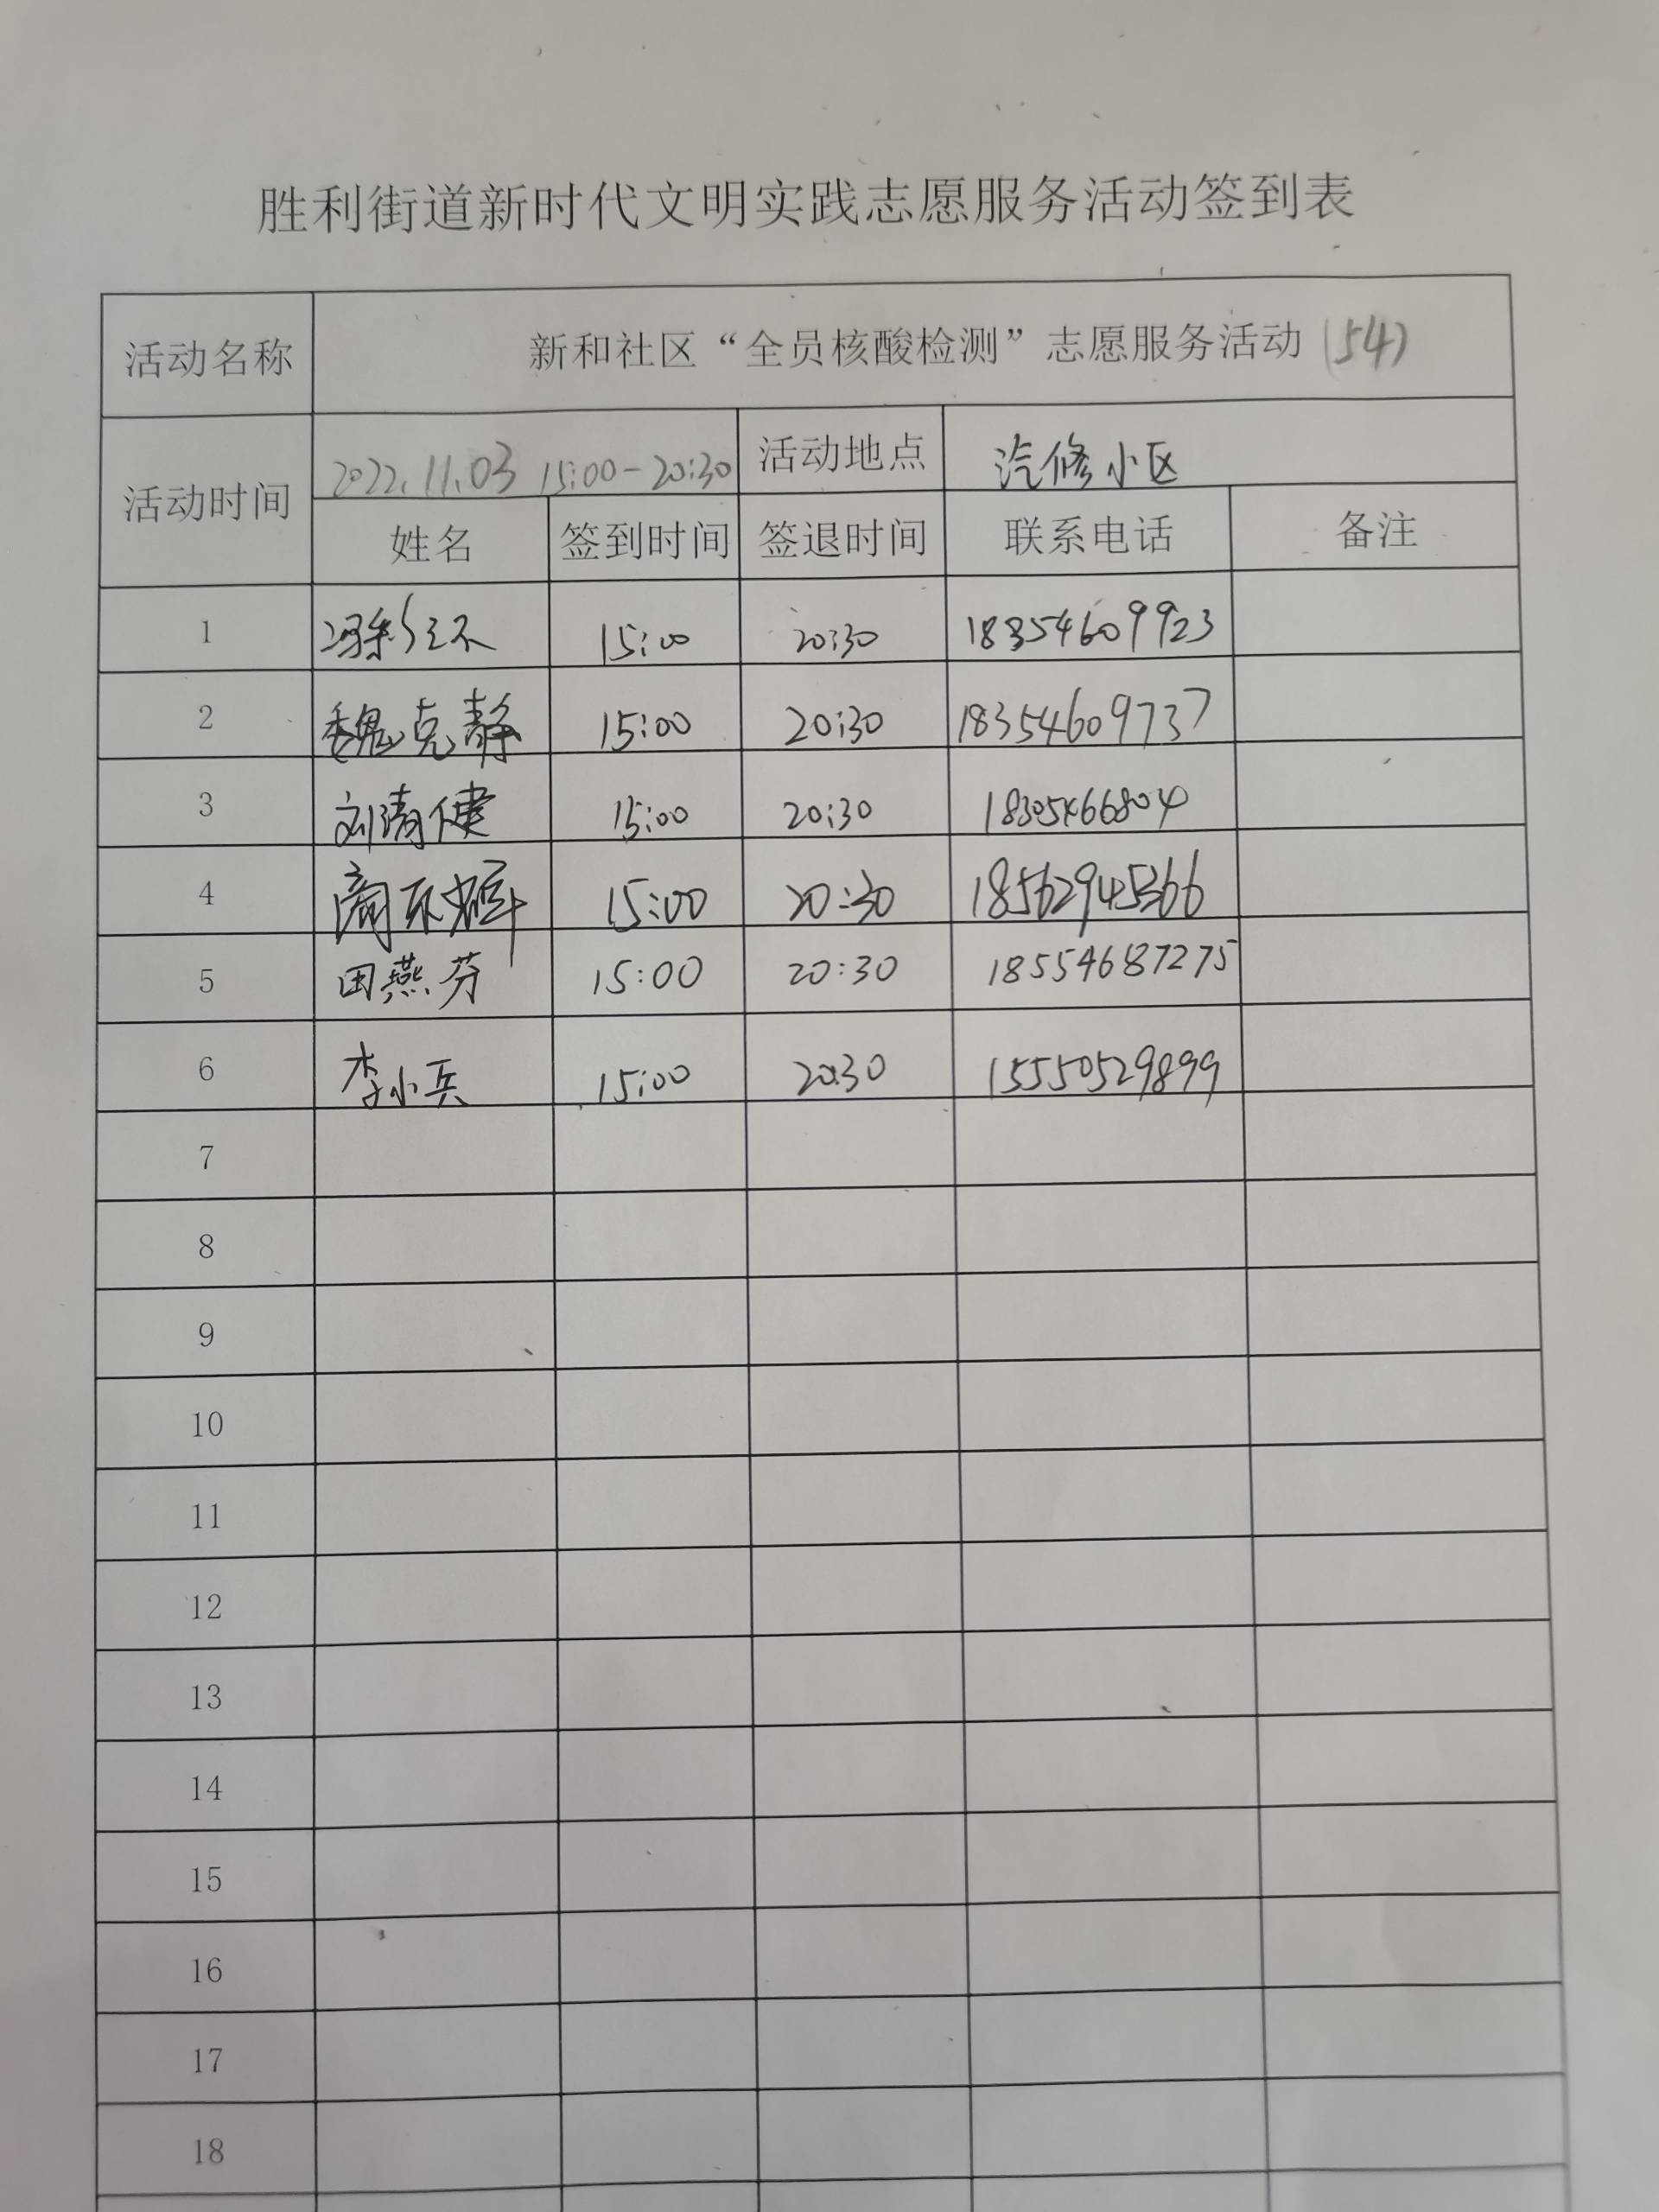 胜利街道新时代文明实践志愿服务活动签到表
活动名称 新和社区“全员核酸检测”志愿服务活动(54)
活动时间 2022.11.03 15:00-20:30 活动地点 汽修小区
姓名 签到时间 签退时间 联系电话 备注
1 15:00 20:30 18354609923
2 魏克静 15:00 20:30 18354609737
3 刘清健 15:00 20:30 18305466804
4 15:00 20:30
5 田燕芬 15:00 20:30 18554687275
6 李小兵 15:00 20:30 15550529899
7
8
9
10
11
12
13
14
15
16
17
18